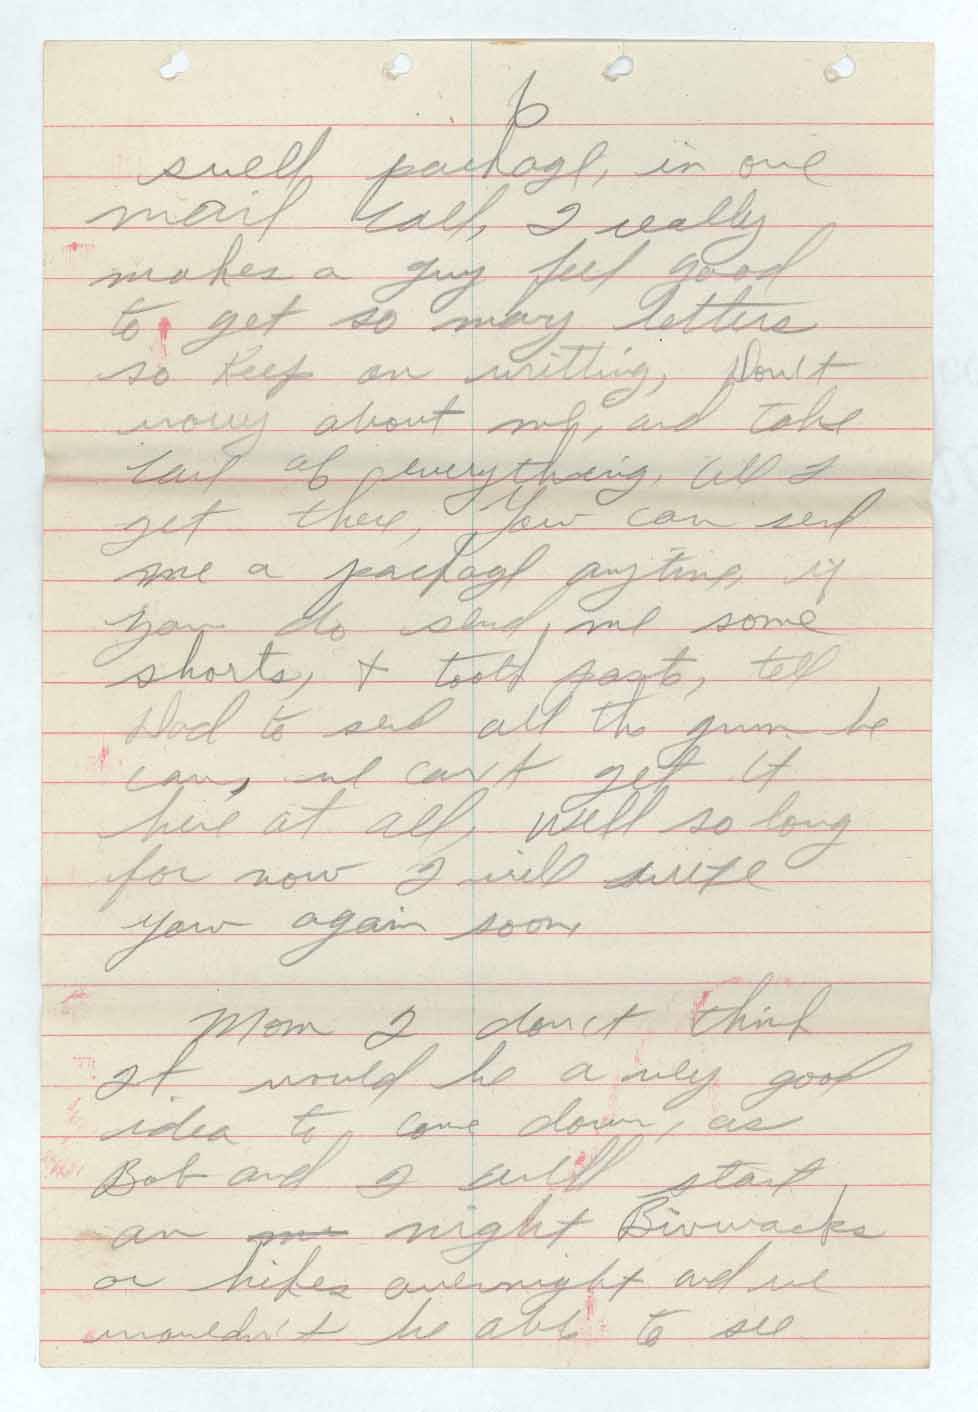 6
swell package, in one
mail call, I really
makes a guy feel good
to get so many letters
so keep on writting, Don't
worry about me, and take
care of everything, till I
get there, You can send
me a package anytime, if
you do send, me some
shorts, + tooth paste, tell
Dad to send all the gum he
can, we can't get it
here at all, well so long
for now I will write
you again soon,
Mom I don't think
It would be a very good
idea to come down, as
Bob and I will start
on night Bivwacks
or hikes overnight and we
wouldn't be able to see